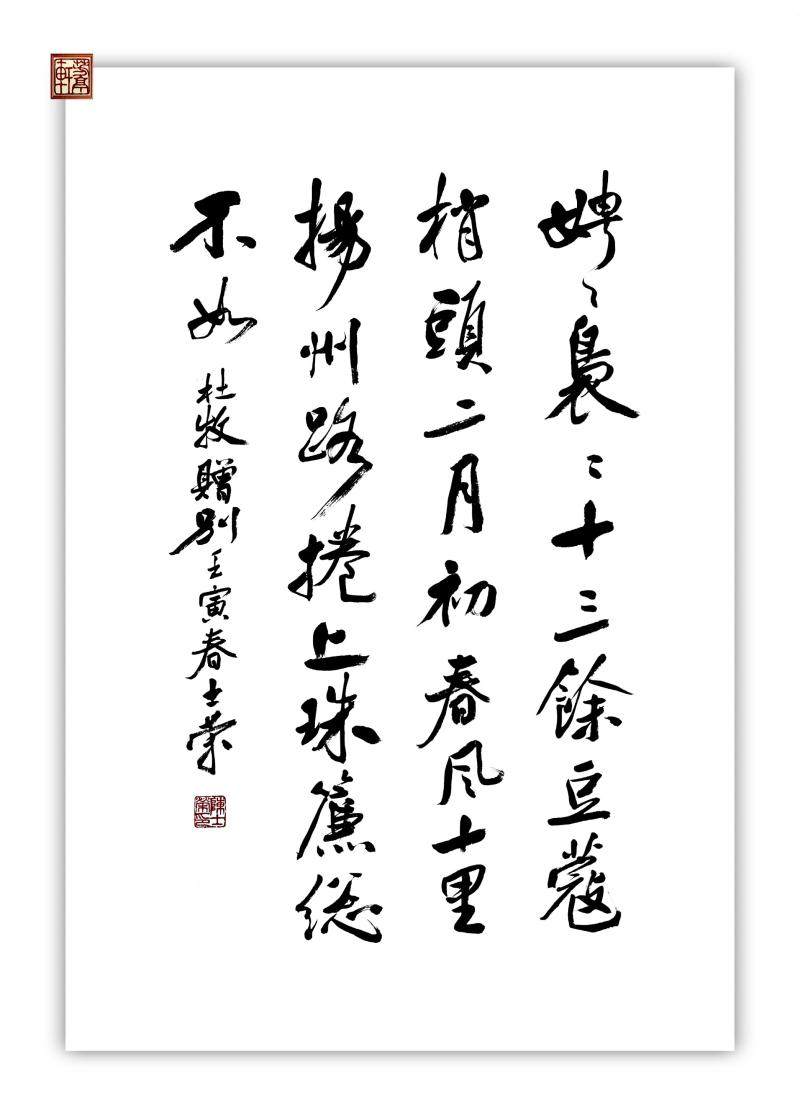 娉〻裊〻十三餘豆蔻
梢頭二月初春風十里
揚州路捲上珠簾総
不如
杜牧贈別壬寅春士榮
陳士榮印